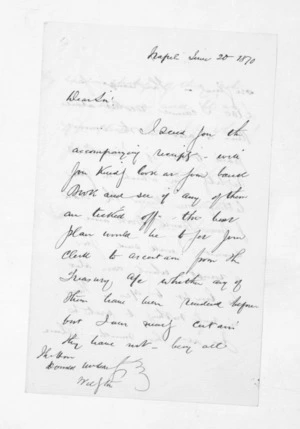 Napier June 20 1870
Dear Sir
I send you the
accompanying receipts will
you kindly look at your bank
Book and see if any of them
are ticked off. The best
plan would be to get your
Clerk to ascertain from the
Treasury, &c whether any of
them have been rendered before
but I am nearly certain
they have not - being all
The Hon
Donald McLean
Welgtn